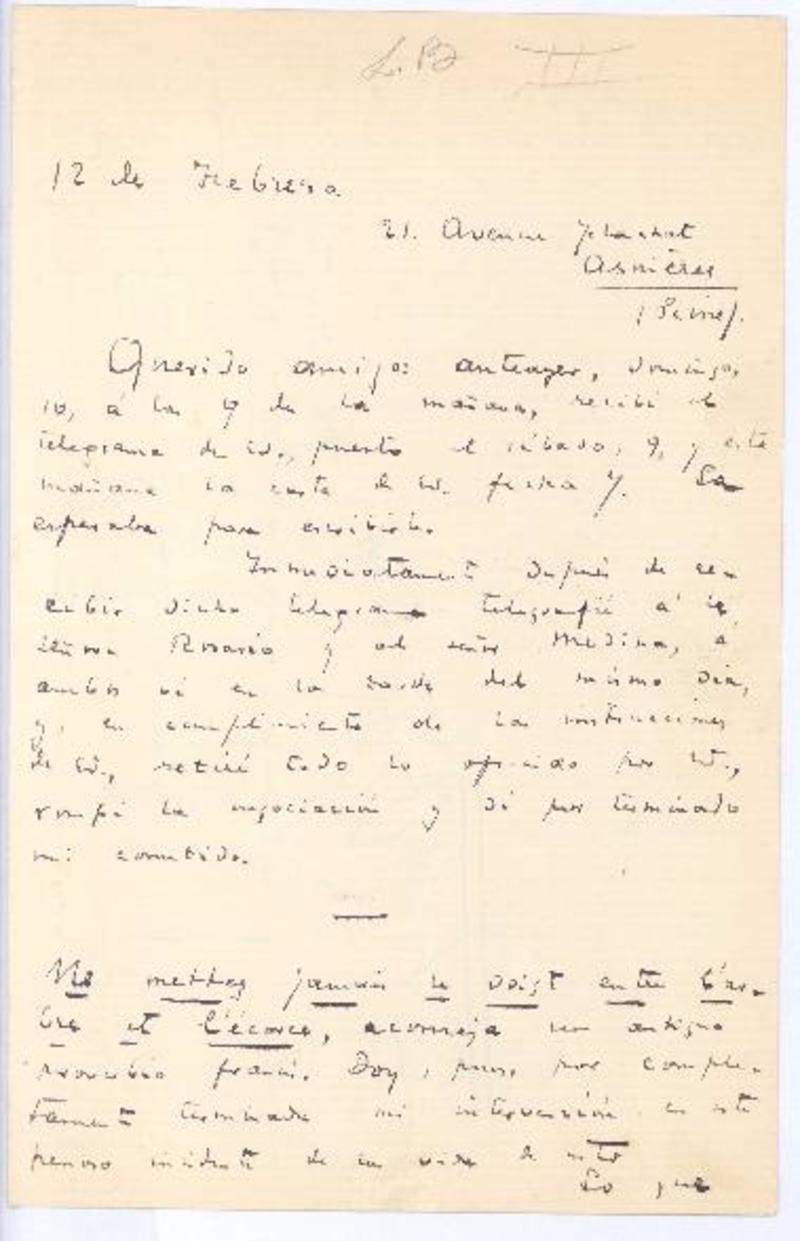 12 de Febrero
21. Avenue
Asnières
(Seine).
Querido amigo: anteayer, domingo,
10, á las 9 de la mañana, recibí el
telegrama de Ud., puesto el sábado, 9, y esta
mañana la carta de Ud. fecha 7. La
esperaba para escribirle.
Inmediatamente después de re-
cibir dicho telegrama telegrafié á la
señora Rosario y al señor Medina, á
ambos ví en la tarde del mismo día,
y, en cumplimiento de las instrucciones
de Ud., retiré todo lo ofrecido por Ud.,
rompí la negociación y dí por terminado
mi cometido.
Ne mettez jamais le doigt entre l'ar-
bre et l'écorce, aconseja un antiguo
proverbio francés. Doy, pues, por comple-
tamente terminada mi intervención en este
penoso incidente de la vida de
Lo que